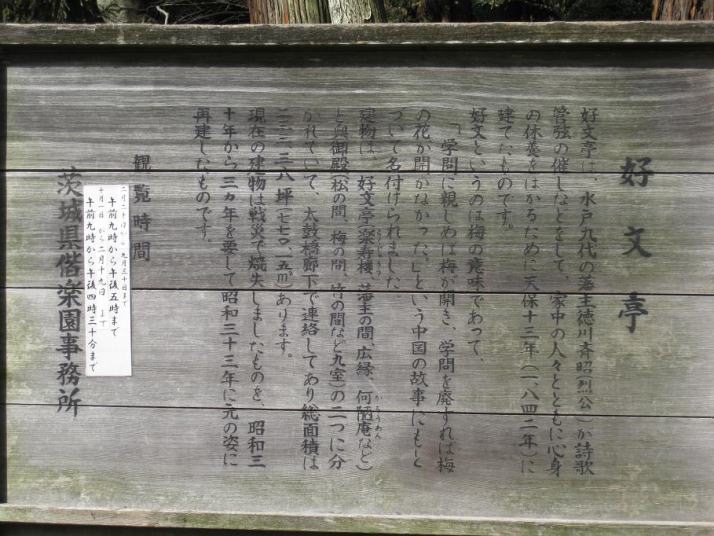 好文亭
好文亭は、水戸九代の藩主徳川斉昭(烈公)が詩歌
管弦の催しなどをして、家中の人々とともに心身
の休養をはかるため、天保十三年(一八四二年)に
建てたものです。
好文というのは梅の意味であって、
「学問に親しめば梅が開き、学問を廃すれば梅
の花が開かなかった。」という中国の故事にもと
づいて名付けられました。
建物は、好文亭(楽寿楼、藩主の間、広縁、何陋庵など)
かろうあん
と奥御殿(松の間、梅の間、竹の間など九室)の二つに分
かれていて、太鼓橋廊下で連絡してあり総面積は
二三三・八坪(七七〇・五㎡)あります。
現在の建物は戦災で焼失しましたものを、昭和三
十年から三ヵ年を要して昭和三十三年に元の姿に
再建したものです。
観覧時間
二月二十日から九月三十日まで
午前九時から午後五時まで
十月一日から二月十九日まで
午前九時から午後四時三十分まで
茨城県偕楽園事務所